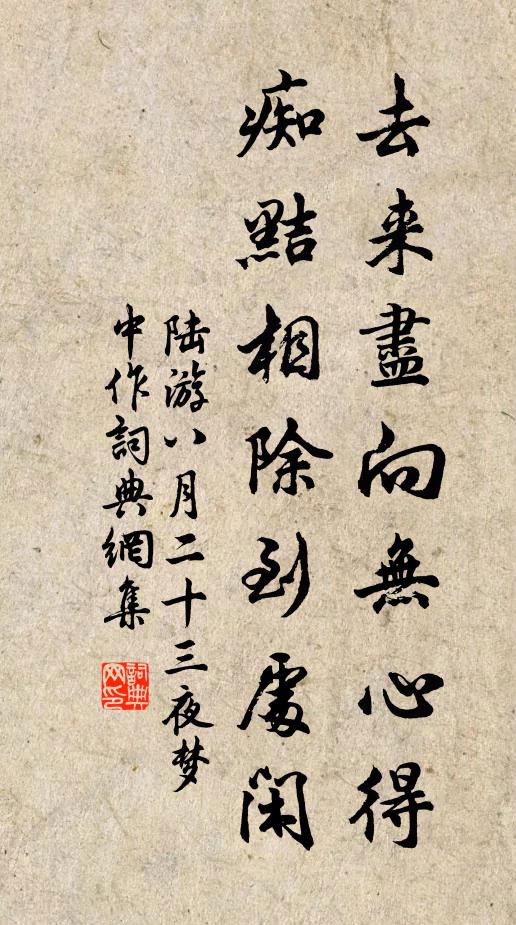 去来盡向無心得
痴黠相除到處閑
陆游八月二十三夜梦
中作詞典網集
詞典
网印